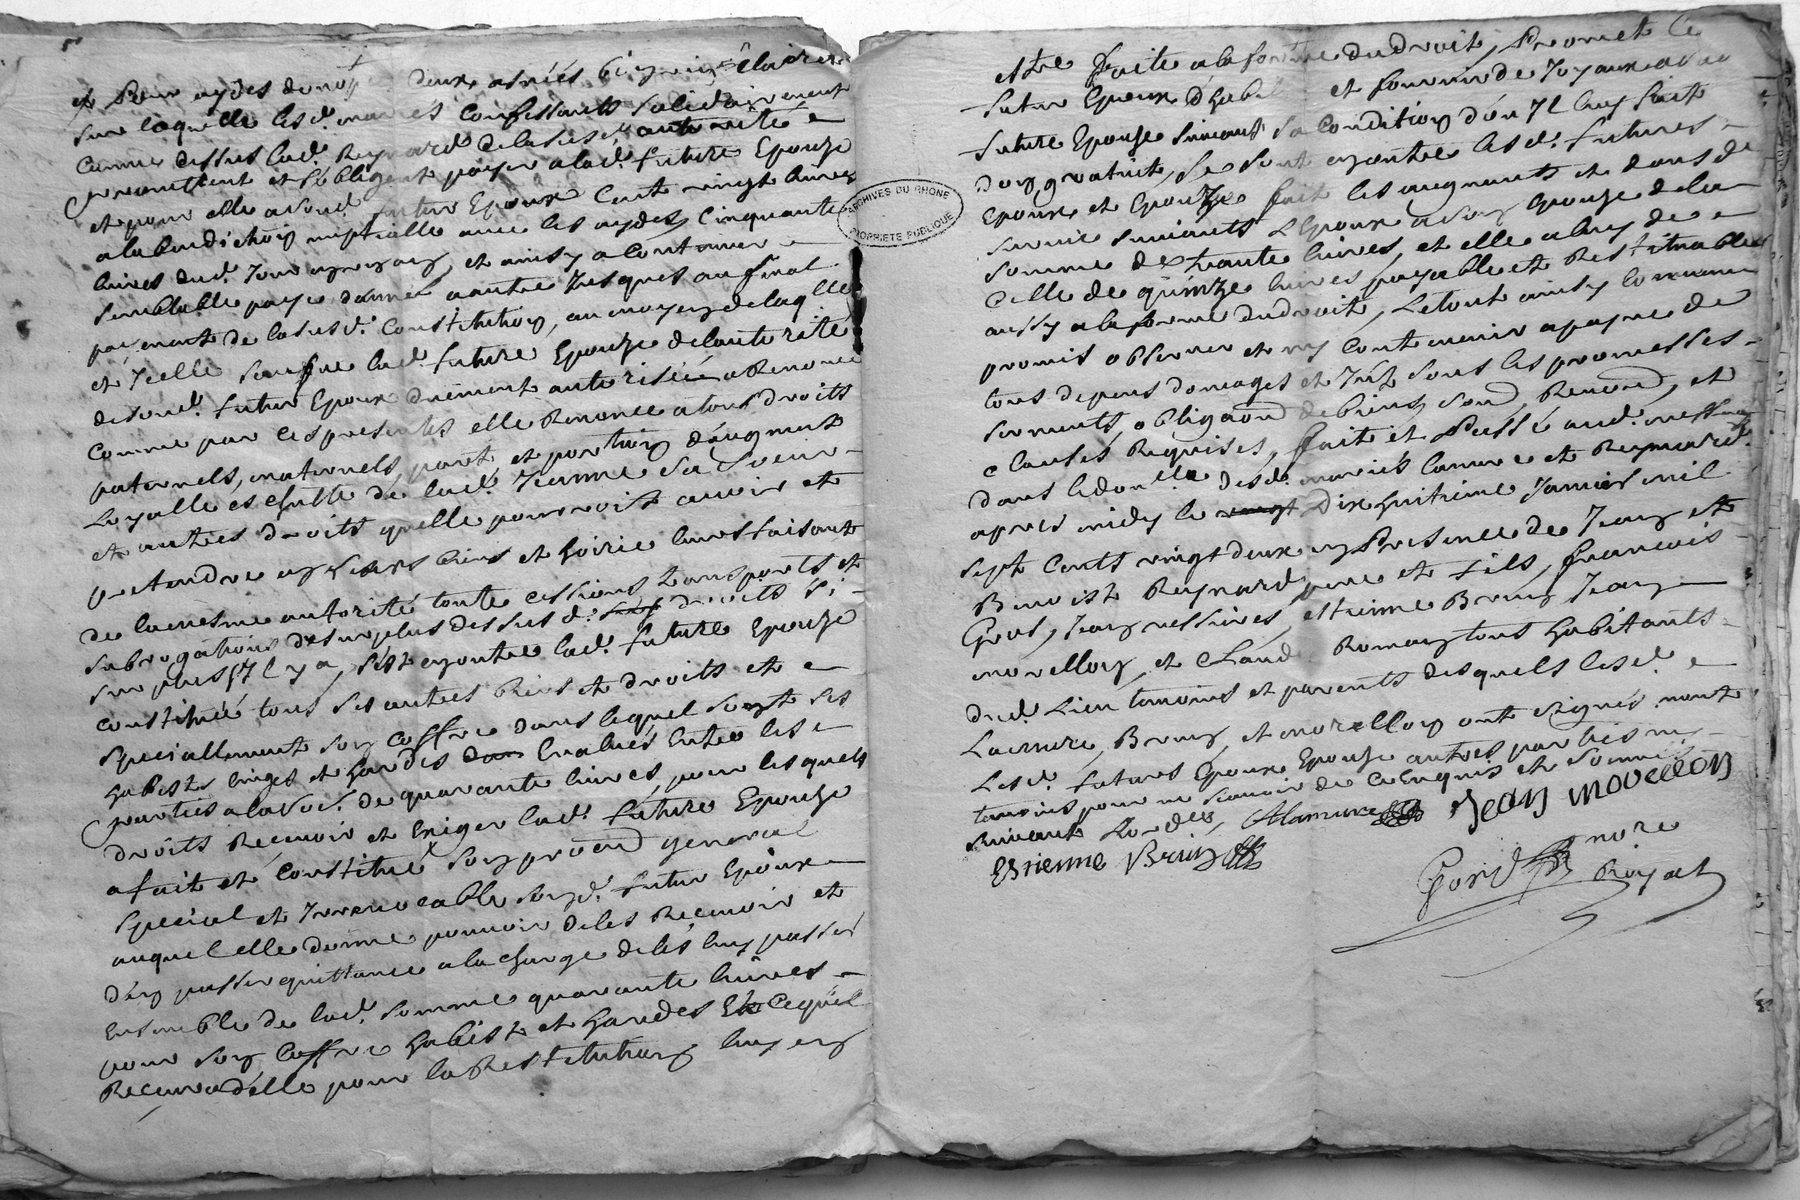 et pour aydes de nopces deux asnées
sur laquelle lesd. mariés confessants solidairement
comme dessus lad. Reynard de lasusd. autorité
promettent et s'obligent payer a lad. future Epouze
et pour elle a sond. futur Epoux Cent vingt livres
a la benediction nuptialle avec les aydes, Cinquante
livres dud. Jour en un an, et ainsy a Continuer
semblable paye d'année a autre Jusques au final
payement de lasusd. Constitution, au moyen de laqlle
et Icelle lad. future Epouze de lautorité
de sond. futur Epoux duement autorisée a Renoncé
comme par ces presentes elle Renonce a tous droits
paternels, maternels, part et portion d'augment
Loyalle eschutte de lad. Jeanne sa soeur
et autres droits quelle pourroit avoir et
pretendre en leurs biens et hoirie leurs faisant
de la mesme autorité toute cessions transports et
subrogations du surplus dessusd. droits si
surplus Il y a, s'est ayontre lad. future Epouze
constituée tous ses autres biens et droits et
speciallement son coffre dans lequel sont ses
habist linges et hardes Evalués Entre les
parties a la so. de quarante livres, pour lesquels
droits Recevoir et Exiger lad. future Epouze
a fait et constitué son procur general
special et Irrevocable sond. futur Epoux
auquel elle donne pouvoir de les Recevoir et
d'en passer quittance a la charge de les luy passer
Ensemble de lad. somme quarante livres
pour son Coffre habist et hardes Et Cequil
Recevra d'elle pour la Restitution luy en
ARCHIVES DU RHONE
PROPRIETE PUBLIQUE
estre faite a la forme du droit, Promet le
futur Epoux d'habil et fournir de Joyaux
future Epouze suivant sa condition d'on Il luy fait
don gratuit, se sont ayontre lesd. futurs
Epoux et Epouze fait les augments et dons de
survie suivants l'Epoux a son Epouze de la
somme de trante livres, et elle a luy de
Celle de quinze livres payable et Restituable
aussy a la forme du droit, Le tout ainsy comme
promis observer et ny Contrevenir a payne de
tous depens domages et Int. sous les promesses
serments, obligaon de biens, soud, Renond, et
clauses Requises, fait et Passé aud. messimy
dans le domlle desd. mariés lamure et Reynard.
apres midy le vingt Dix huitieme Janvier mil
sept cents vingt deux en Presence de Jean et
Benoist Reynard pere et fils, françois
Gros, Jean messimes, estienne Brun Jean
morellon, et Claude Romany tous habitants
dud. Lieu temoins et parents desquels lesd.
Lamure, Brun, et morellon ont signés, nont
Lesd. futurs Epoux Epouze autres parties ny
temoins pour ne scavoir de ce Enquis et sommés
suivant Lordce, ALamure Jean movellon
Estienne Brun
nore
Royal